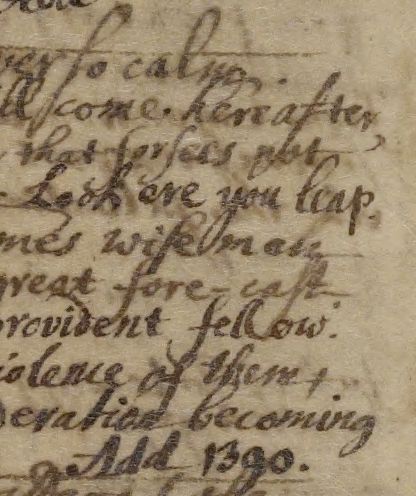 ver so calm.
ill come hereafter
that forsees not
Look ere you leap.
mes wise man
great fore-cast
provident fellow:
iolence of them,
deration becoming
Add 1390.